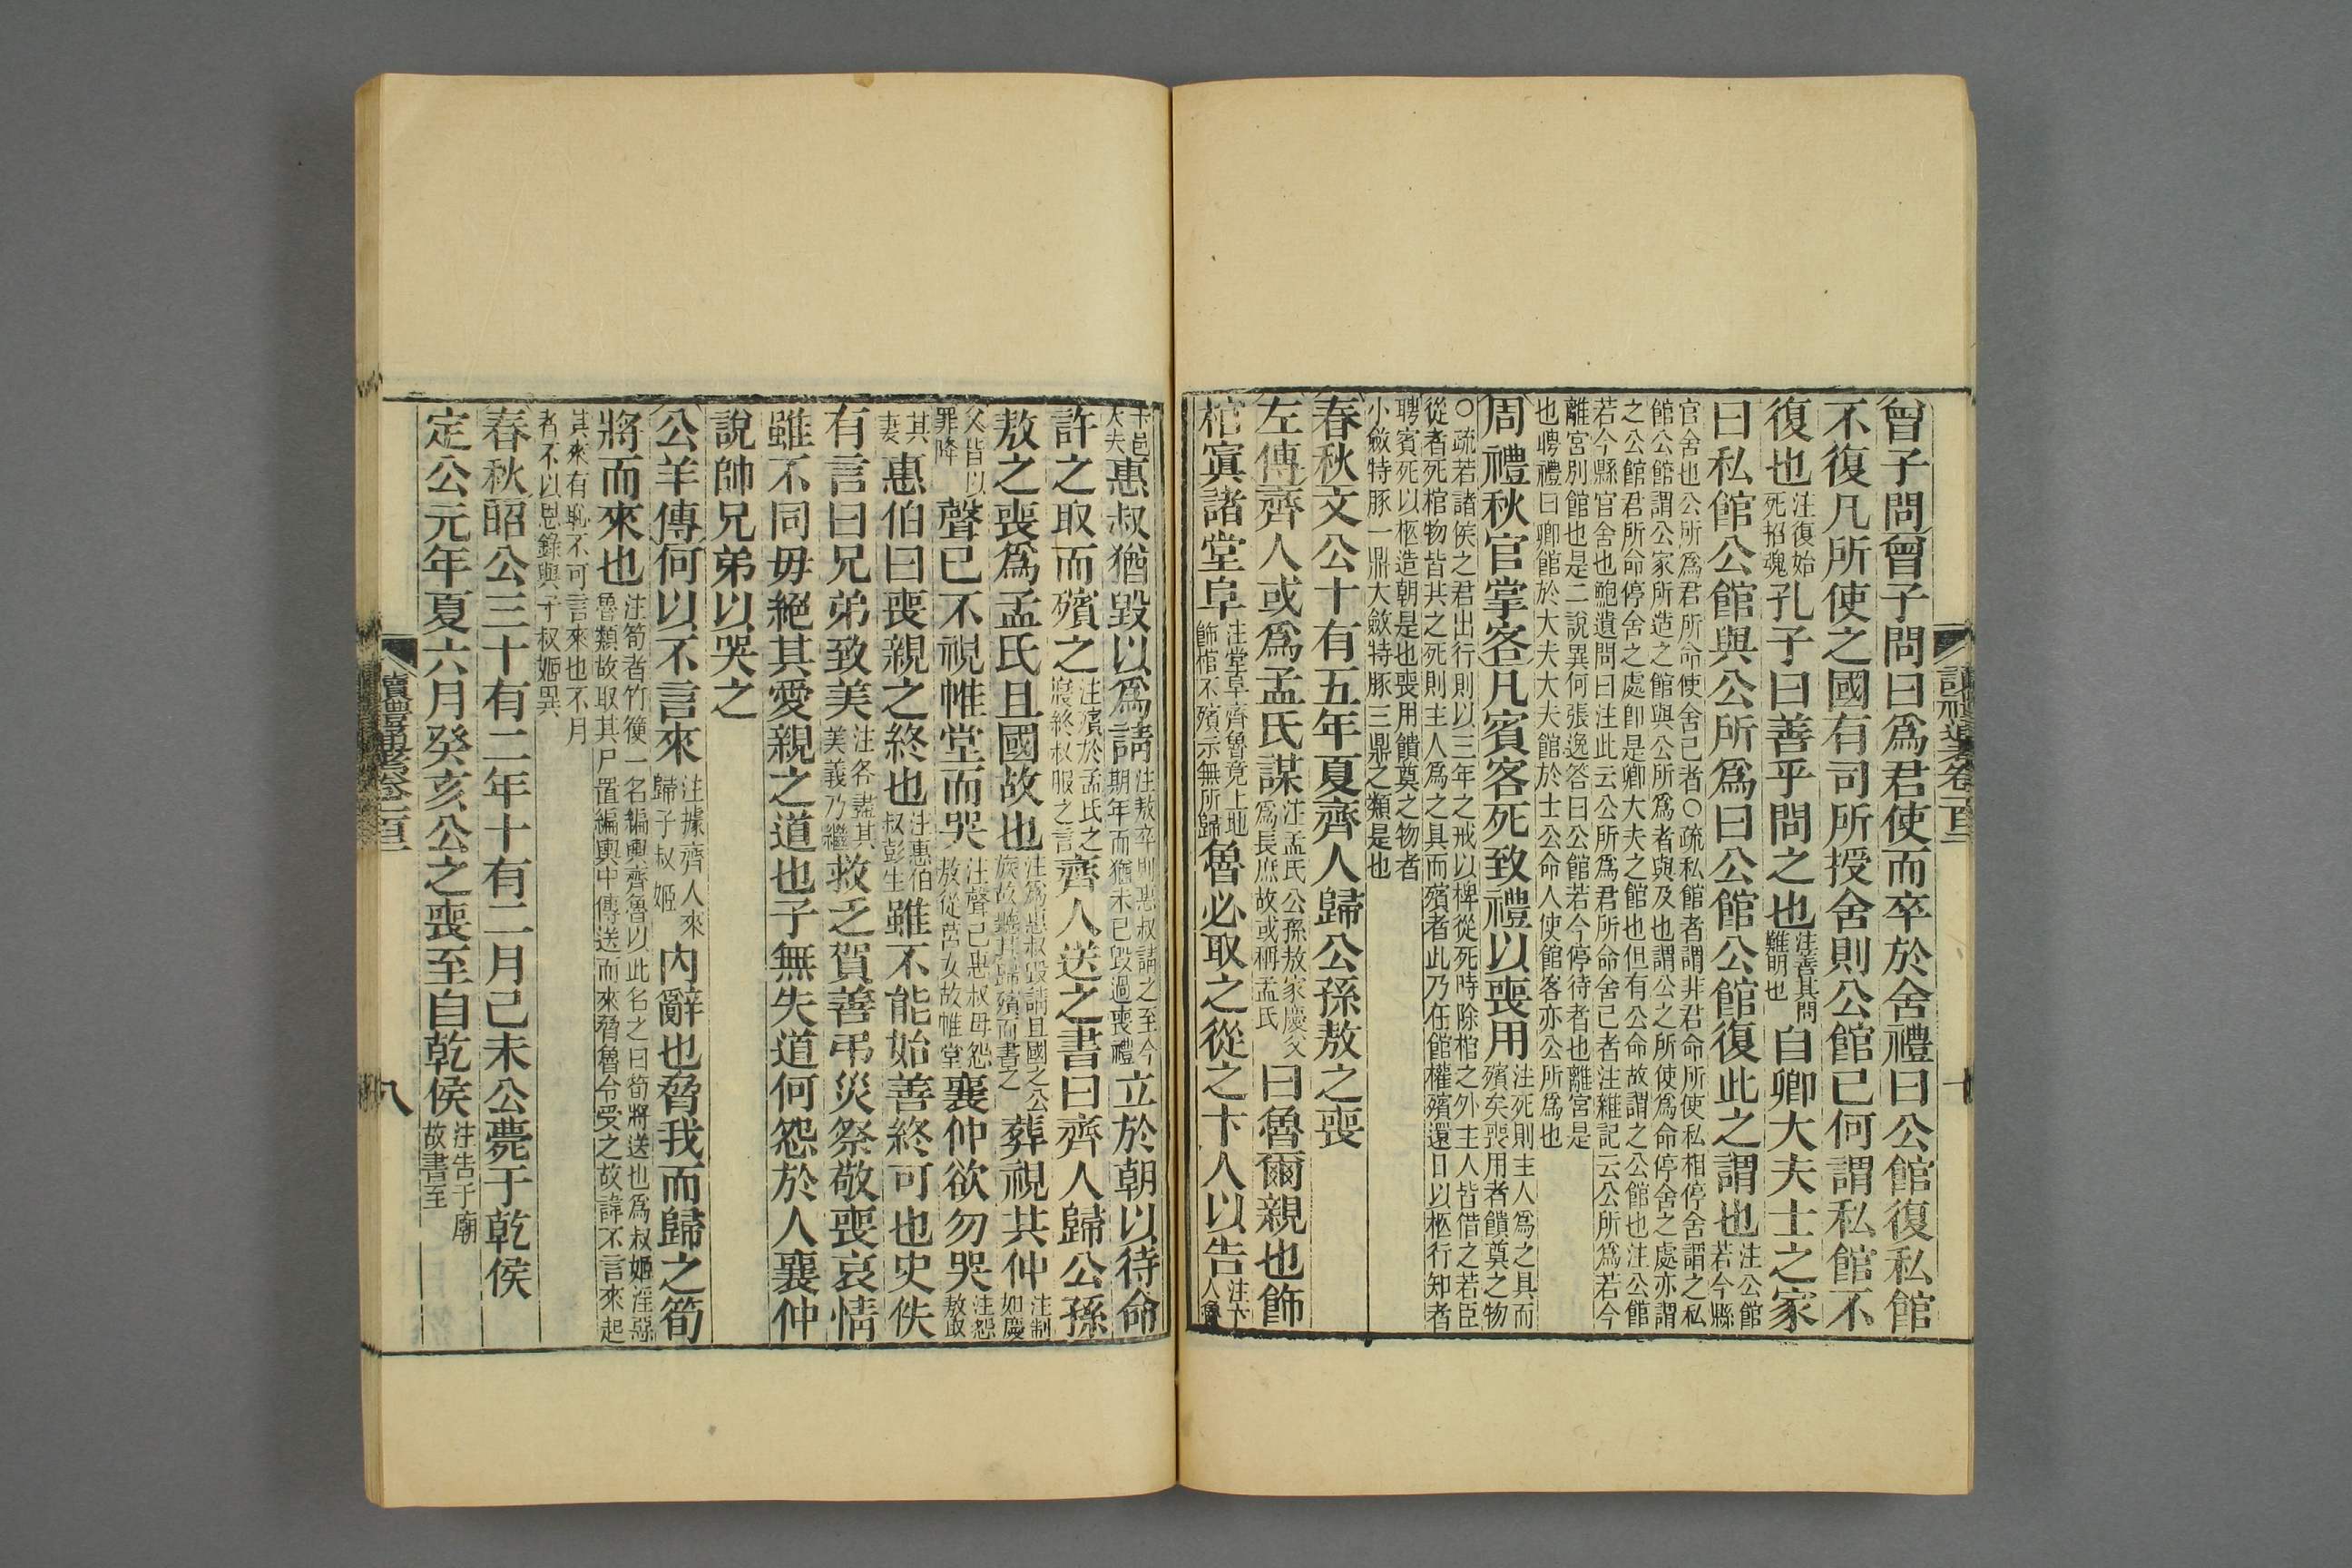 曾子問曾子問曰爲君使而卒於舍禮曰公館復私館
不復凡所使之國有司所授舍則公館已何謂私館不
復也注復始死招魂孔子曰善乎問之也注善其問難明也自卿大夫士之家
曰私館公館與公所爲曰公館公館復此之謂也注公館若今縣
官舍也公所爲君所命使舍己者○疏私館者謂非君命所使私相停舍謂之私
館公館謂公家所造之館與公所爲者與及也謂公之所使爲命停舍之處亦謂
之公館君所命停舍之處卽是卿大夫之館也但有公命故謂之公館也注公館
若今縣官舍也鮑遺問曰注此云公所爲君所命舍己者注雜記云公所爲若今
離宮別館也是二說異何張逸答曰公館若今停待者也離宮是
也聘禮曰卿館於大夫大夫館於士公命人使館客亦公所爲也
周禮秋官掌客凡賓客死致禮以喪用注死則主人爲之具而殯矣喪用者饋奠之物
○疏若諸侯之君出行則以三年之戒以椑從死時除棺之外主人皆借之若臣
從者死棺物皆共之死則主人爲之具而殯者此乃在館權殯還日以柩行知者
聘賓死以柩造朝是也喪用饋奠之物者
小斂特豚一鼎大斂特豚三鼎之類是也
春秋文公十有五年夏齊人歸公孫敖之喪
左傳齊人或爲孟氏謀注孟氏公孫敖家慶父爲長庶故或稱孟氏曰魯爾親也飾
棺寘諸堂阜注堂阜齊魯竟上地飾棺不殯示無所歸魯必取之從之卞人以告注卞人魯
卞邑大夫惠叔猶毀以爲請注敖卒則惠叔請之至今期年而猶未已毀過喪禮立於朝以待命
許之取而殯之注殯於孟氏之寢終叔服之言齊人送之書曰齊人歸公孫
敖之喪爲孟氏且國故也注爲惠叔毀請且國之公族故聽其歸殯而書之葬視共仲注制如慶
父皆以罪降聲已不視帷堂而哭注聲已惠叔母怨敖從莒女故帷堂襄仲欲勿哭注怨敖取
其妻惠伯曰喪親之終也注惠伯叔彭生雖不能始善終可也史佚
有言曰兄弟致美注各盡其美義乃繼救乏賀善弔災祭敬喪哀情
雖不同毋絕其愛親之道也子無失道何怨於人襄仲
說帥兄弟以哭之
公羊傳何以不言來注據齊人來歸子叔姬內辭也脅我而歸之筍
將而來也注筍者竹箯一名編輿齊魯以此名之曰筍將送也爲叔姬淫惡魯類故取其尸置編輿中傳送而來脅魯令受之故諱不言來起
其來有恥不可言來也不月
者不以恩錄與子叔姬異
春秋昭公三十有二年十有二月己未公薨于乾侯
定公元年夏六月癸亥公之喪至自乾侯注告于廟故書至
讀禮通考卷一百三
八